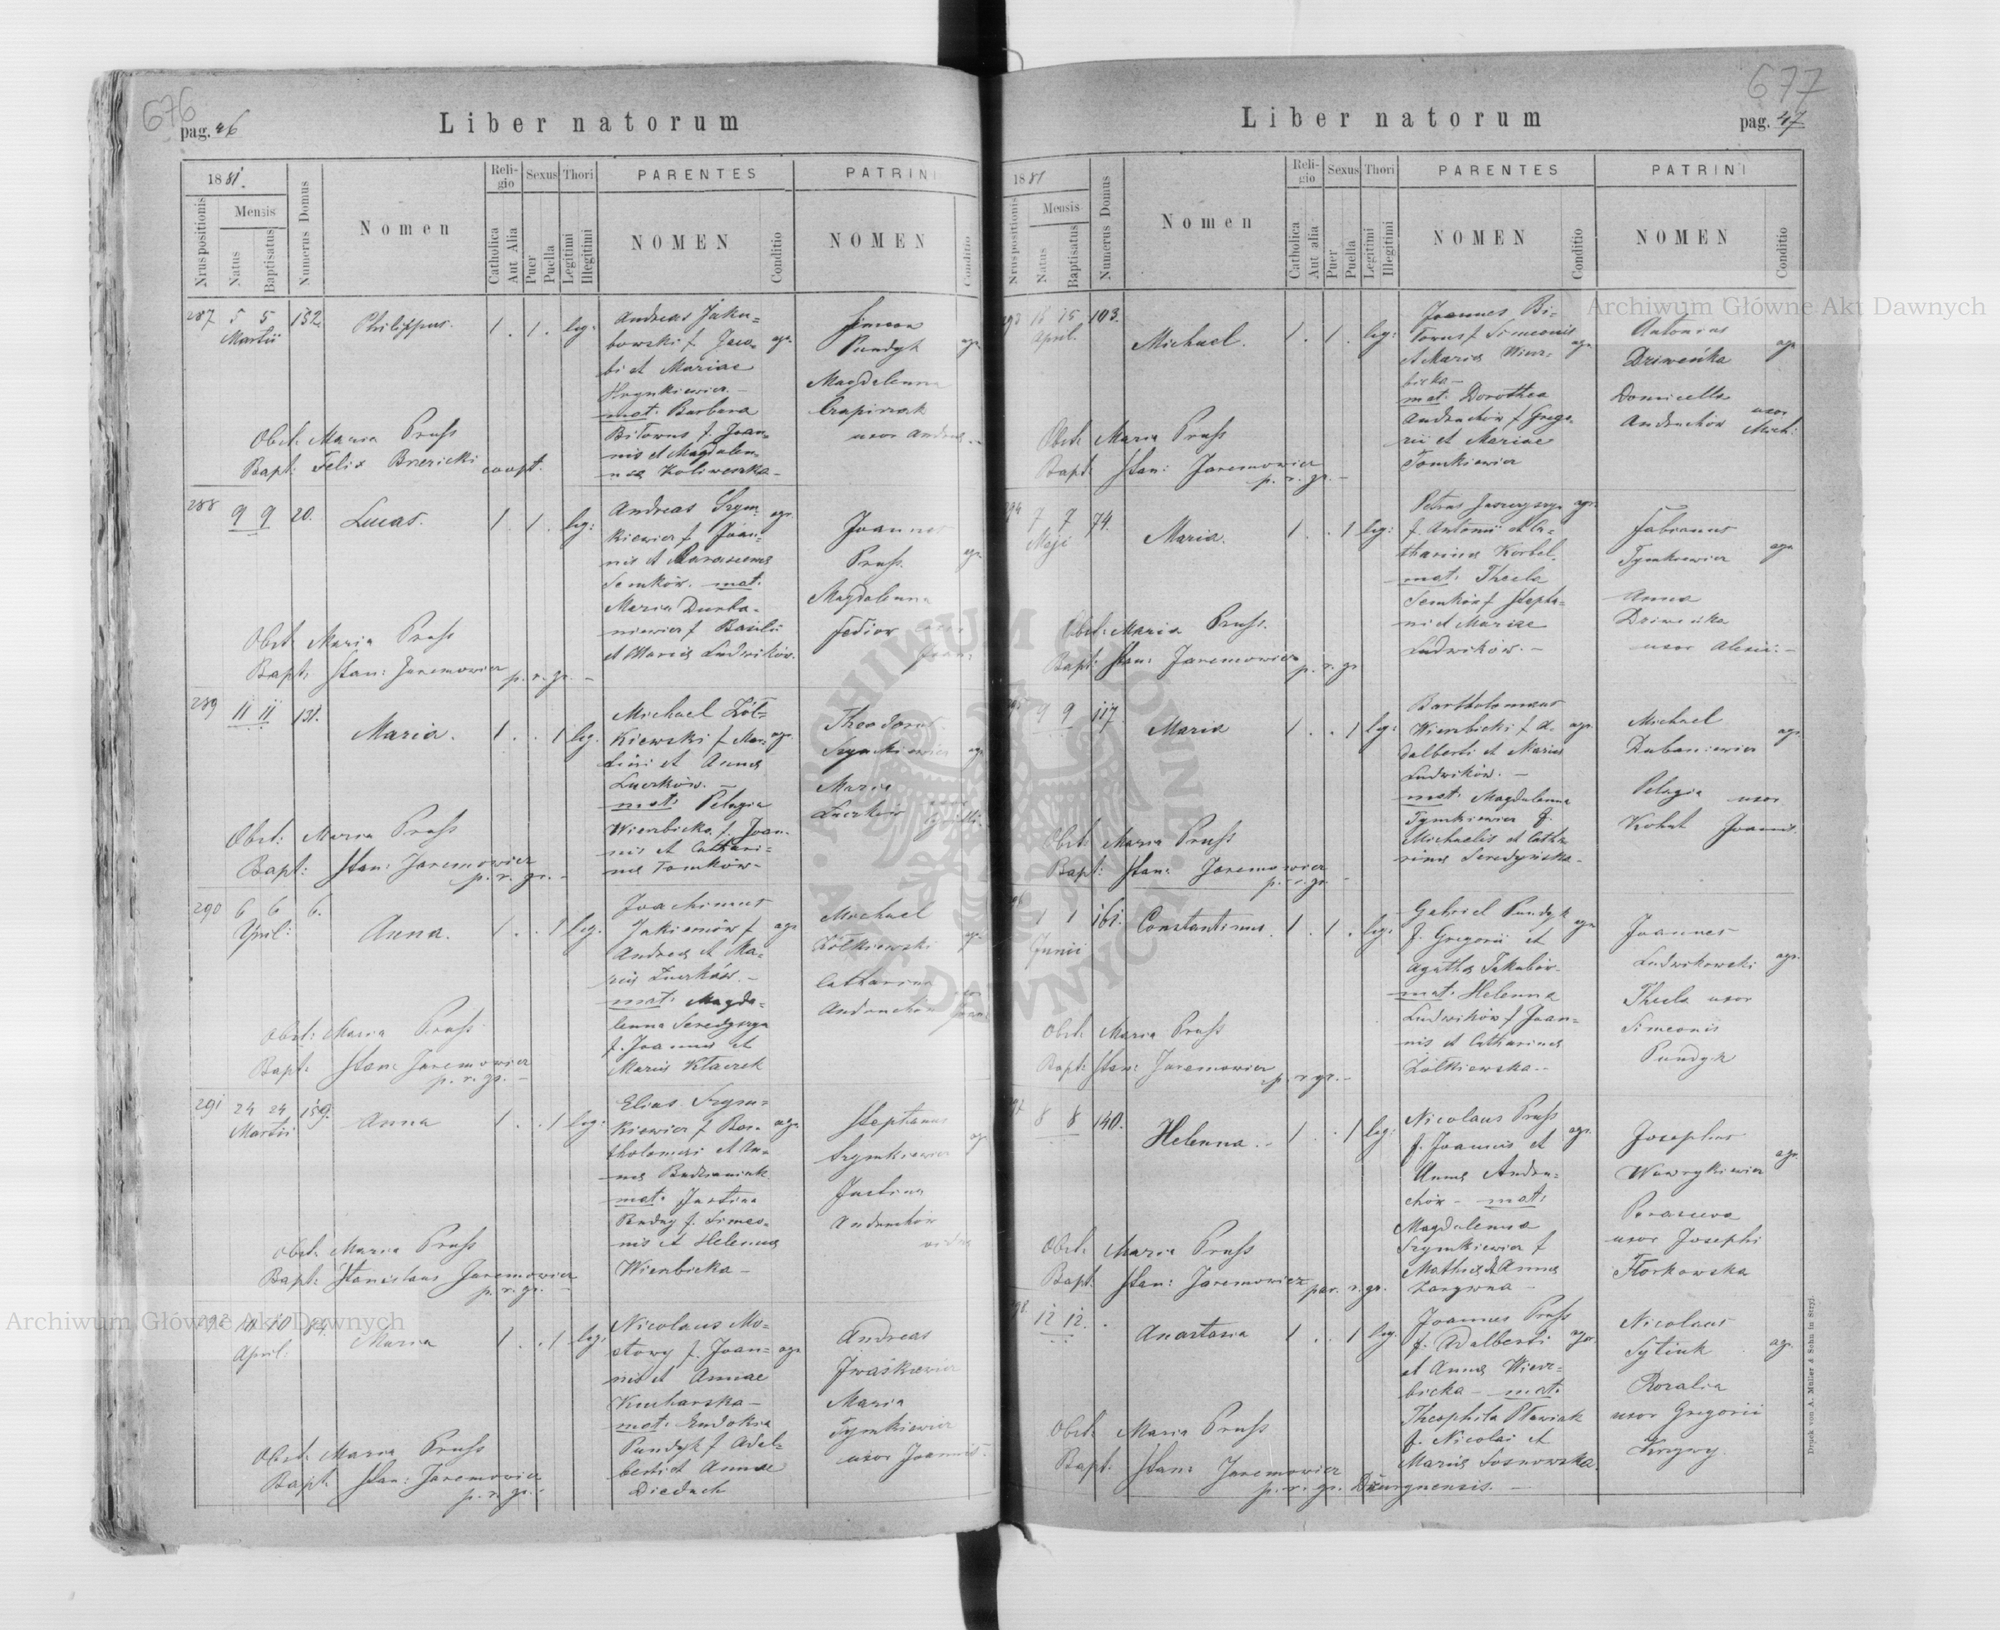 676
pag. 46
Liber natorum
1881.
Nruspositionis
Mensis
Natus
Baptisatus
Numerus Domus
Nomen
Religio
Catholica
Aut Alia
Sexus
Puer
Puella
Thori
Legitimi
Illegitimi
PARENTES
NOMEN
Conditio
PATRINI
NOMEN
Conditio
287 5 5 132.
Martii
Philippus. 1 . 1 . leg:
Andreas Jaku=
bowski f. Jaco= agr.
bi et Mariae
Szymkiewicz –
mat: Barbara
Bitowus f. Joan=
nis et Magdalen=
Simeon
Pundyk agr.
Magdalenna
uxor Andreae
Obst: Maria Pruss
Bapt: Felix Brzezicki coopt.
288 9 9 20.
Lucas. 1 . 1 . leg:
Andreas Szym= agr.
kiewicz f. Joan=
nis et Parascevae
Semków. mat:
Maria Duba=
niewicz f. Basilii
et Mariae Ludwików.
Joannes
Pruss. agr.
Magdalenna
Fedior
Obst: Maria Pruss
Bapt: Stan: Jaremowicz p. r. gr. –
289 11 11 131.
Maria. 1 . . 1 leg.
Michael Żół=
kiewski f. Mar= agr.
tini et Annae
Luczków. –
mat: Pelagia
Wierzbicka f. Joan=
nis et Cathari=
nae Tomków –
Theodorus
Szymkiewicz agr.
Maria
Luczków
Obst: Maria Pruss
Bapt: Stan: Jaremowicz
p. r. gr. –
290 6 6 6.
April:
Anna. 1 . . 1 leg.
Joachimus
Jakimów f. agr.
Andreae et Ma=
riae Luczków –
mat: Magda=
lenna Seredyszyn
f. Joannis et
Mariae
Michael
Żółkiewski agr.
Catharina
Andruchów
Obst: Maria Pruss
Bapt: Stan: Jaremowicz
p. r. gr. –
291 24 24 159.
Martii
Anna 1 . . 1 leg:
Elias Szym=
kiewicz f. Bar= agr.
tholomaei et An=
nae
mat: Justina
Pundyk f. Simeo=
nis et Helenae
Wierzbicka –
Stephanus
Szymkiewicz agr.
Justina
Andruchów
vidua
Obst: Maria Pruss
Bapt: Stanislaus Jaremowicz
p. r. gr. –
292 10 10 84.
April:
Maria 1 . . 1 leg:
Nicolaus Mo=
stowy f. Joan= agr.
nis et Annae
Kucharska –
mat: Eudokia
Pundyk f. Adal=
berti et Annae
Diduch
Andreas
Iwaśkiewicz
Maria
Tymkiewicz
uxor Joannis.
Obst: Maria Pruss
Bapt: Stan: Jaremowicz
p. r. gr. –
677
pag. 47
Liber natorum
1881
Nruspositionis
Mensis
Natus
Baptisatus
Numerus Domus
Nomen
Religio
Catholica
Aut alia
Sexus
Puer
Puella
Thori
Legitimi
Illegitimi
PARENTES
NOMEN
Conditio
PATRINI
NOMEN
Conditio
293 15 25 103.
April.
Michael. 1 . 1 . leg:
Joannes Bi=
towus f. Simeonis agr.
et Mariae Wierz=
bicka –
mat: Dorothea
Andruchów f. Grego=
rii et Mariae
Tomkiewicz
Antonius
Dziweńka agr.
Domicella
Andruchów uxor Mich:
Obst: Maria Pruss
Bapt: Stan: Jaremowicz
p. r. gr. –
294 7 7 74.
Maji
Maria. 1 . . 1 leg:
f. Antonii et Ca=
tharinae Korbel.
mat: Thecla
Semków f. Stepha=
ni et Mariae
Ludwików. –
Fabianus
Tymkiewicz agr.
Anna
Dziweńka
uxor Alexii. –
Obst: Maria Pruss.
Bapt: Stan: Jaremowicz p. r. gr
9 9 117.
Maria 1 . . 1 leg:
Bartholomaeus
Wierzbicki f. A= agr.
dalberti et Mariae
Ludwików. –
mat: Magdalenna
Tymkiewicz f.
Michaelis et Catha
rinae Seredyńska –
Michael
Dubaniewicz agr.
Pelagia uxor
Kohut Joannis.
Obst: Maria Pruss
Bapt: Stan: Jaremowicz
p. r. gr. –
1 1 161.
Junii
Constantinus. 1 . 1 . leg:
Gabriel Pundyk agr.
f. Gregorii et
Agatha Jakubów.
mat: Helenna
Ludwików f. Joan=
nis et Catharinae
Żółkiewska. –
Joannes
Ludwikowski agr.
Thecla uxor
Simeonis
Pundyk
Obst: Maria Pruss
Bapt: Stan: Jaremowicz
p. r. gr. –
8 8 140.
Helenna. – 1 . . 1 leg:
Nicolaus Pruss
f. Joannis et agr.
Annae Andru=
chów – mat:
Magdalenna
Szymkiewicz f.
Mathiae & Annae
Josephus
Wawrykiewicz agr.
Parasceva
uxor Josephi
Florkowska
Obst: Maria Pruss
Bapt: Stan: Jaremowicz par. r. gr.
298. 12 12. .
Anastasia 1 . . 1 leg.
Joannes Pruss
f. Adalberti agr.
et Annae Wierz=
bicka – mat:
Theophila Pławiak
f. Nicolai et
Mariae Sosnowska.
Nicolaus
Sytiuk agr.
Rozalia
uxor Gregorii
Obst: Maria Pruss
Bapt. Stan: Jaremowicz
p. r. gr. Dżurynensis. –
Druck von A. Müller & Sohn in Stryj.
Archiwum Główne Akt Dawnych
Archiwum Główne Akt Dawnych
ARCHIWUM GŁÓWNE AKT DAWNYCH